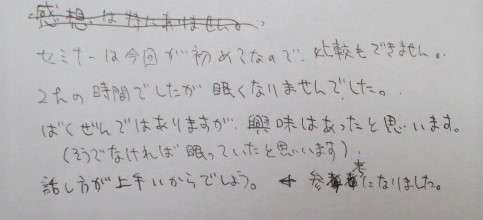 感想は特にありません。
セミナーは今回が初めてなので、比較もできません。
2hの時間でしたが眠くなりませんでした。
ばくぜんではありますが、興味はあったと思います。
(そうでなければ眠っていたと思います)
話し方が上手いからでしょう。 ← 参考になりました。